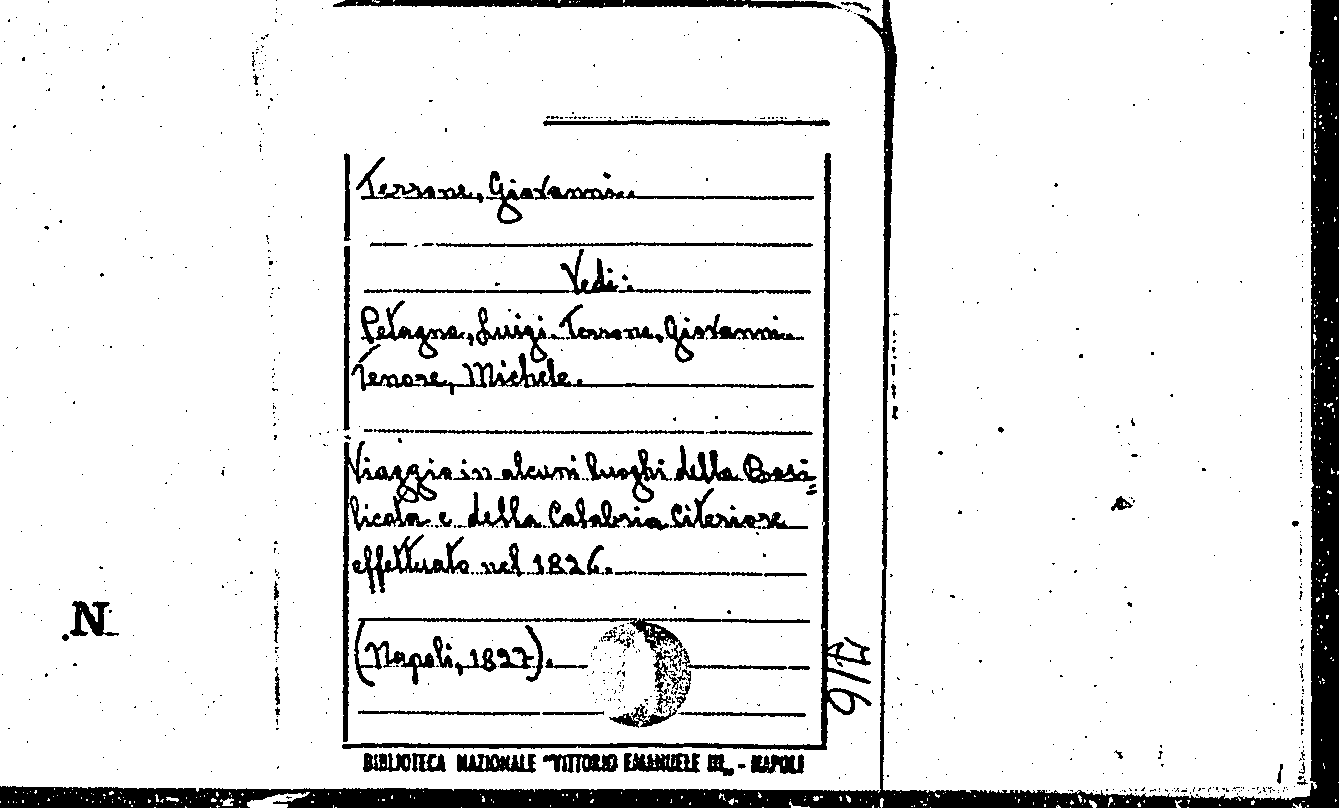 Terrone, Giovanni.
Vedi:
Petagna, Luigi. Terrone, Giovanni.
Tenore, Michele.
Viaggio in alcuni luoghi della Basi=
licata e della Calabria Citeriore
effettuato nel 1826.
(Napoli, 1827).
BIBLIOTECA NAZIONALE "VITTORIO EMANUELE III" - NAPOLI
.N